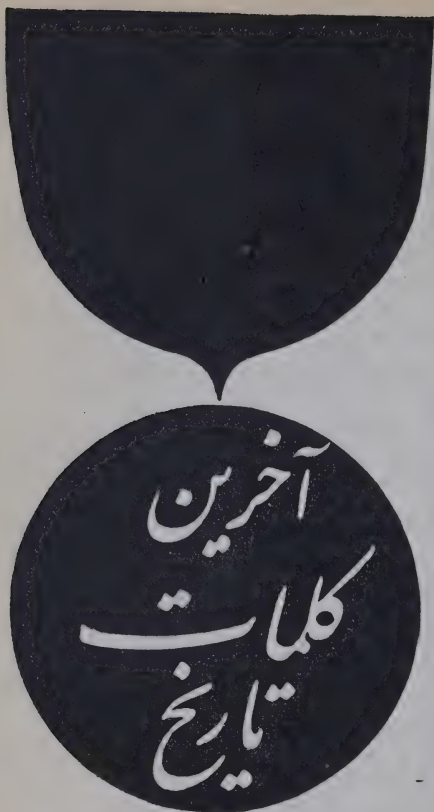 آخرین
کلمات
تاریخ